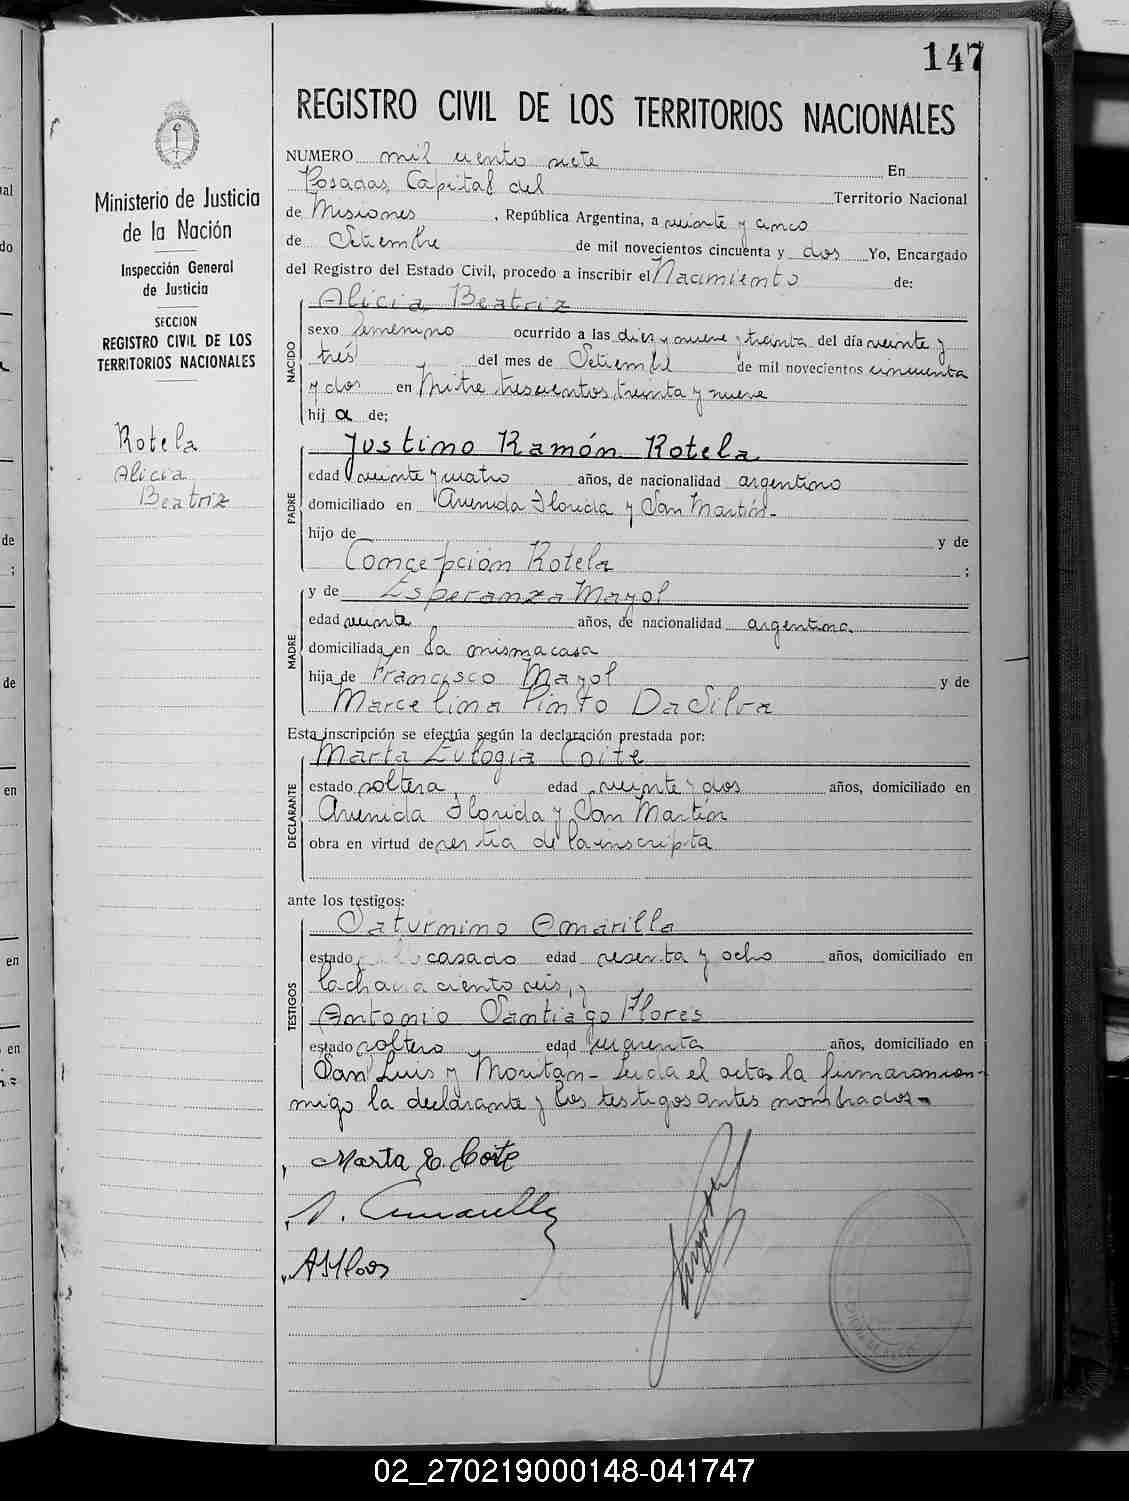 147
REGISTRO CIVIL DE LOS TERRITORIOS NACIONALES
Ministerio de Justicia
de la Nación
Inspección General
de Justicia
SECCION
REGISTRO CIVIL DE LOS
TERRITORIOS NACIONALES
Rotela
Alicia
Beatriz
NUMERO mil ciento siete En
Posadas, Capital del Territorio Nacional
de Misiones, República Argentina, a veinte y cinco
de Setiembre de mil novecientos cincuenta y dos Yo, Encargado
del Registro del Estado Civil, procedo a inscribir el Nacimiento de:
Alicia Beatriz
NACIDO
sexo femenino ocurrido a las diez y nueve y treinta del día veinte y
tres del mes de Setiembre de mil novecientos cincuenta
y dos en Mitre trescientos treinta y nueve
hij a de;
Justino Ramón Rotela
PADRE
edad veinte y cuatro años, de nacionalidad argentino
domiciliado en Avenida Florida y San Martín-
hijo de y de
Concepción Rotela ;
y de Esperanza Mayol
MADRE
edad veinte años, de nacionalidad argentina
domiciliada en la misma casa
hija de Francisco Mayol y de
Marcelina Pinto DaSilva
Esta inscripción se efectúa según la declaración prestada por:
Marta Eulogia Coite
DECLARANTE
estado soltera, edad veinte y dos años, domiciliado en
Avenida Florida y San Martín
obra en virtud de ser tia de la inscripta
ante los testigos:
Saturnino Amarilla
TESTIGOS
estado casado edad sesenta y ocho años, domiciliado en
la chacra ciento seis, y
Antonio Santiago Flores
estado soltero edad cuarenta años, domiciliado en
San Luis y Moritán - Leida el acta la firmaron con-
migo la declarante y los testigos antes nombrados-
Marta E. Coite
S. Amarilla
ASFlores
02_270219000148-041747